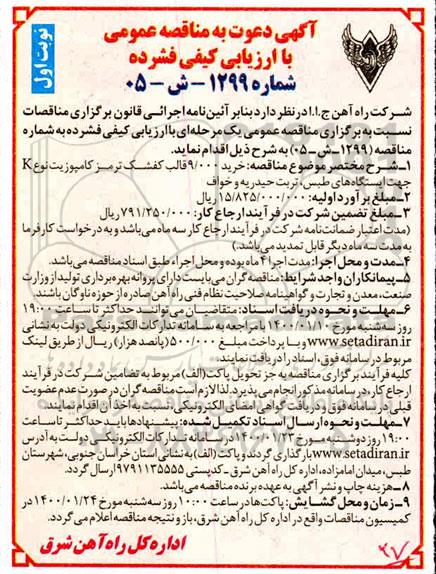 نوبت اول
آگهی دعوت به مناقصه عمومی
با ارزیابی کیفی فشرده
شماره ۱۲۹۹ – ش – ۰۵
شرکت راه آهن ج.ا.ا در نظر دارد بنابر آئین نامه اجرائی قانون برگزاری مناقصات
نسبت به برگزاری مناقصه عمومی یک مرحله‌ای با ارزیابی کیفی فشرده به شماره
مناقصه (۱۲۹۹-ش-۰۵) به شرح ذیل اقدام نماید.
۱-شرح مختصر موضوع مناقصه: خرید ۹/۰۰۰ قالب کفشک ترمز کامپوزیت نوع K
جهت ایستگاه‌های طبس، تربت حیدریه و خواف
۲-مبلغ برآورد اولیه: ۱۵/۸۲۵/۰۰۰/۰۰۰ ریال
۳-مبلغ تضمین شرکت در فرآیند ارجاع کار: ۷۹۱/۲۵۰/۰۰۰ ریال
(مدت اعتبار ضمانت‌نامه شرکت در فرآیند ارجاع کار سه ماه می‌باشد و به درخواست کارفرما
به مدت سه ماه دیگر قابل تمدید می‌باشد.)
۴-مدت و محل اجرا: مدت اجرا ۴ ماه بوده و محل اجراء طبق اسناد مناقصه می‌باشد.
۵-پیمانکاران واجد شرایط: مناقصه گران می‌بایست دارای پروانه بهره برداری تولید از وزارت
صنعت، معدن و تجارت و گواهینامه صلاحیت نظام فنی راه آهن صادره از حوزه ناوگان باشند.
۶-مهلت و نحوه دریافت اسناد: متقاضیان می‌توانند حداکثر تا ساعت ۱۹:۰۰
روز سه‌شنبه مورخ ۱۴۰۰/۰۱/۱۰ با مراجعه به سامانه تدارکات الکترونیکی دولت به نشانی
www.setadiran.ir و با پرداخت مبلغ ۵۰۰/۰۰۰ (پانصد هزار) ریال از طریق لینک
مربوط در سامانه فوق، اسناد را دریافت نمایند.
کلیه فرآیند برگزاری مناقصه به جز تحویل پاکت (الف) مربوط به تضامین شرکت در فرآیند
ارجاع کار، در سامانه مذکور انجام می‌پذیرد. لذا لازم است مناقصه گران در صورت عدم عضویت
قبلی در سامانه فوق و دریافت گواهی امضای الکترونیکی، نسبت به اخذ آن اقدام نمایند.
۷-مهلت و نحوه ارسال اسناد تکمیل شده: پیشنهادها باید حداکثر تا ساعت
۱۹:۰۰ روز دوشنبه مورخ ۱۴۰۰/۰۱/۲۳ در سامانه تدارکات الکترونیکی دولت به آدرس
www.setadiran.ir بارگذاری گردند و پاکت (الف) به نشانی استان خراسان جنوبی، شهرستان
طبس، میدان امامزاده، اداره کل راه آهن شرق - کدپستی ۹۷۹۱۱۳۵۵۵۵ ارسال گردد.
۸-هزینه چاپ و نشر آگهی به عهده برنده مناقصه می‌باشد.
۹-زمان و محل گشایش: پاکت‌ها در ساعت ۱۰:۰۰ روز سه‌شنبه مورخ ۱۴۰۰/۰۱/۲۴ در
کمیسیون مناقصات واقع در اداره کل راه آهن شرق، باز و نتیجه مناقصه اعلام می‌گردد.
اداره کل راه آهن شرق